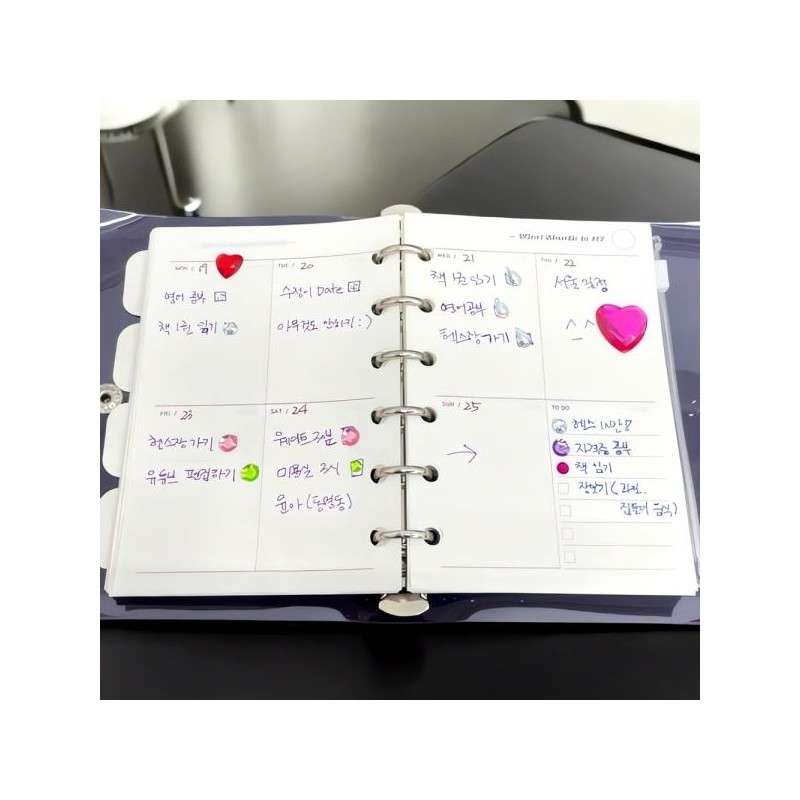 What Month is it?
MON / 19
영어 공부
책 1권 읽기
TUE / 20
수정이 Date
아무것도 안하기 :)
WED / 21
책 1권 읽기
영어공부
헬스장 가기
THU / 22
서울 일정
^_^
FRI / 23
헬스장 가기
유튜브 편집하기
SAT / 24
웨이트 30분
미용실 2시
윤아 (동명동)
SUN / 25
→
TO DO
헬스 1시간!!
자격증 공부
책 읽기
장보기 (과일,
집들이 음식)